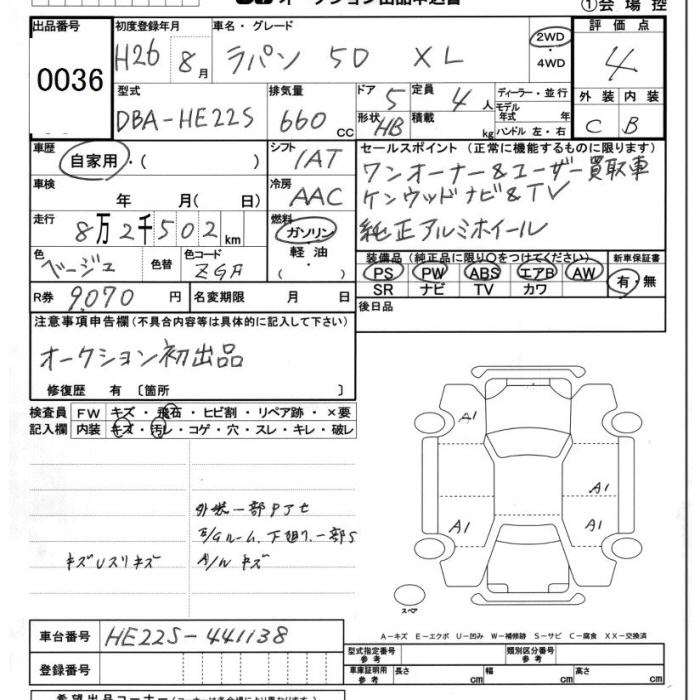 ①会場控
出品番号
0036
初度登録年月
H26 8月
車名・グレード
ラパン 5D XL
2WD
・4WD
評価点
4
型式
DBA-HE22S
排気量
660cc
ドア
5
定員
4人
形状
HB
積載
kg
ディーラー・並行
モデル年式 年
ハンドル 左・右
外装 内装
C B
車歴
自家用・( )
シフト
IAT
セールスポイント (正常に機能するものに限ります)
ワンオーナー&ユーザー買取車
ケンウッドナビ&TV
純正アルミホイール
車検
年 月( 日)
冷房
AAC
走行
8万2千502km
燃料
ガソリン
軽油
・( )
色
ベージュ
色替
色コード
ZGA
装備品 (純正品に限り○をつけてください)
PS PW ABS エアB AW
SR ナビ TV カワ
新車保証書
有・無
R券
9,070円
名変期限 月 日
後日品
注意事項申告欄 (不具合内容等は具体的に記入して下さい)
オークション初出品
修復歴 有 〔箇所 〕
検査員 FW キズ・飛石・ヒビ割・リペア跡・×要
記入欄 内装 キズ・汚レ・コゲ・穴・スレ・キレ・破レ
A1
A1
A1
A1
外装一部PJセ
E/Gルーム、下廻り、一部S
キズUスリキズ
A/W キズ
スペア
A-キズ E-エクボ U-凹み W-補修跡 S-サビ C-腐食 XX-交換済
車台番号
HE22S-441138
登録番号
型式指定番号
参考
類別区分番号
参考
車庫証明用
参考
長さ cm
幅 cm
高さ cm